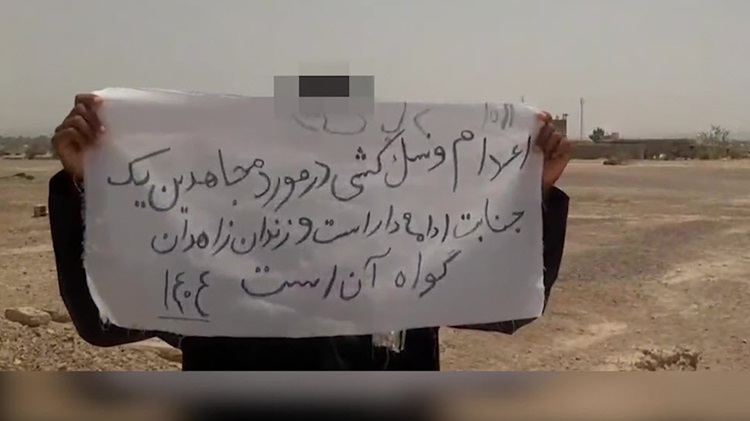 اعدام و نسل‌کشی در مورد مجاهدین یک
جنایت ادامه‌دار است و زندان زاهدان
گواه آن است ۱۴۰۴